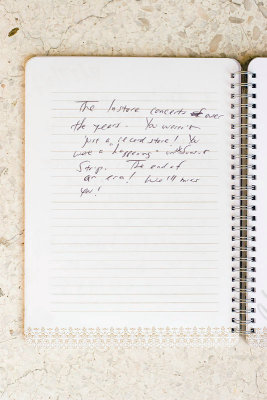 The Instore concerts over
the years. You weren't
just a record store! You
were a "happening" on Sunset
Strip. The end of
an era! We'll miss
you!